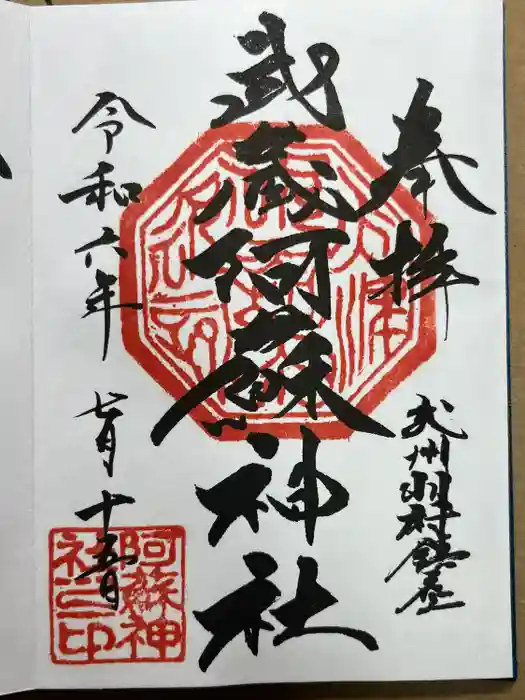 奉拝
武州羽村鎮座
武蔵阿蘇神社
令和六年 七月十五日
阿蘇神社之印